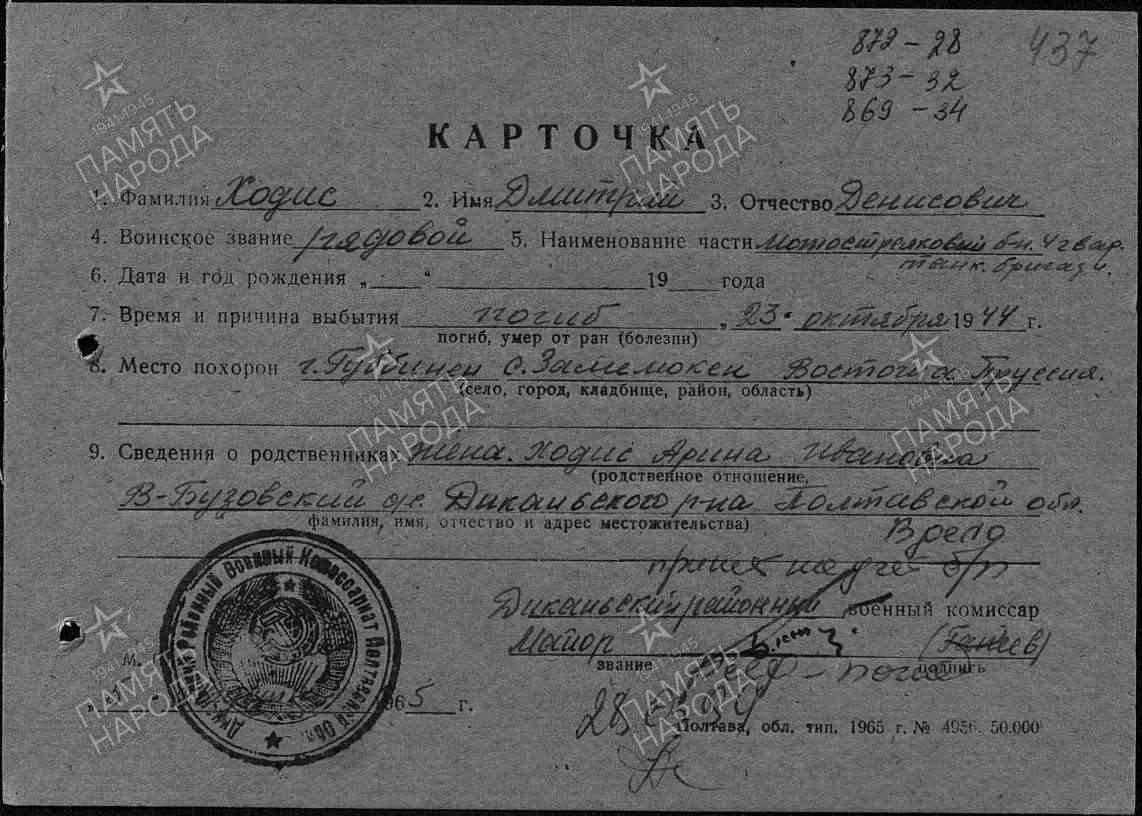 872-28
437
873-32
869-34
КАРТОЧКА
1. Фамилия Ходис 2. Имя Дмитрий 3. Отчество Денисович
4. Воинское звание рядовой 5. Наименование части Мотострелковий б-н. 4 гвар.
танк. бригади.
6. Дата и год рождения „ “ 19 года
7. Время и причина выбытия погиб „23“ октября 1944 г.
погиб, умер от ран (болезни)
8. Место похорон г. Гумбинен с. Восточная Пруссия.
(село, город, кладбище, район, область)
9. Сведения о родственниках жена. Ходис Арина Ивановна
(родственное отношение,
В-Бузовский с/с. Диканьского р-на Полтавской обл.
фамилия, имя, отчество и адрес местожительства)
В дело
Диканьский районный военный комиссар
Майор
звание подпись
М.
1965 г.
28
Полтава, обл. тип. 1965 г. № 4956. 50.000
Районный Военный Комиссариат Полтавской Обл.
1941-1945
ПАМЯТЬ
НАРОДА
1941-1945
ПАМЯТЬ
НАРОДА
1941-1945
ПАМЯТЬ
НАРОДА
1941-1945
ПАМЯТЬ
НАРОДА
1941-1945
ПАМЯТЬ
НАРОДА
1941-1945
ПАМЯТЬ
НАРОДА